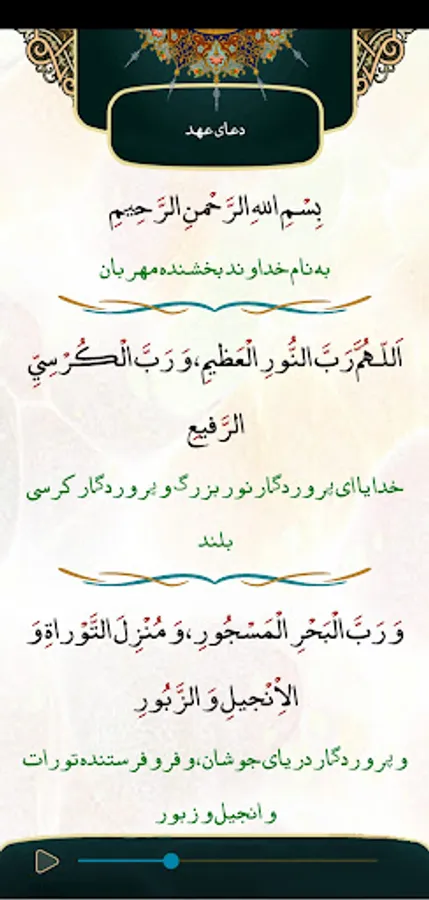 دعای عهد
بِسْمِ اللهِ الرَّحْمنِ الرَّحِیمِ
به نام خداوند بخشنده مهربان
اَللّهُمَّ رَبَّ النُّورِ الْعَظیمِ، وَ رَبَّ الْکُرْسِیِّ
الرَّفیعِ
خدایا ای پروردگار نور بزرگ و پروردگار کرسی
بلند
وَ رَبَّ الْبَحْرِ الْمَسْجُورِ، وَ مُنْزِلَ التَّوْراةِ وَ
الاِْنْجیلِ وَ الزَّبُورِ
و پروردگار دریای جوشان، و فرو فرستنده تورات
و انجیل و زبور